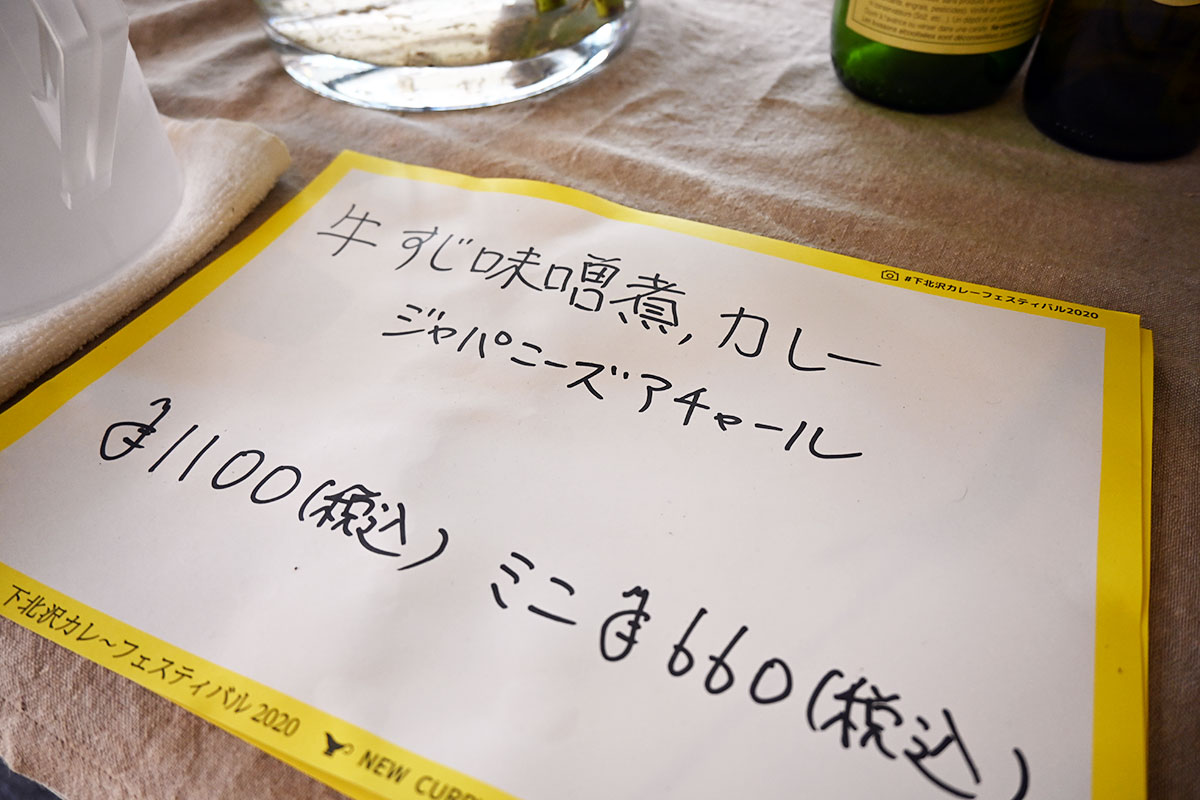 #下北沢カレーフェスティバル2020
牛すじ味噌煮,カレー
ジャパニーズアチャール
¥1100(税込) ミニ¥660(税込)
下北沢カレ〜フェスティバル 2020 NEW